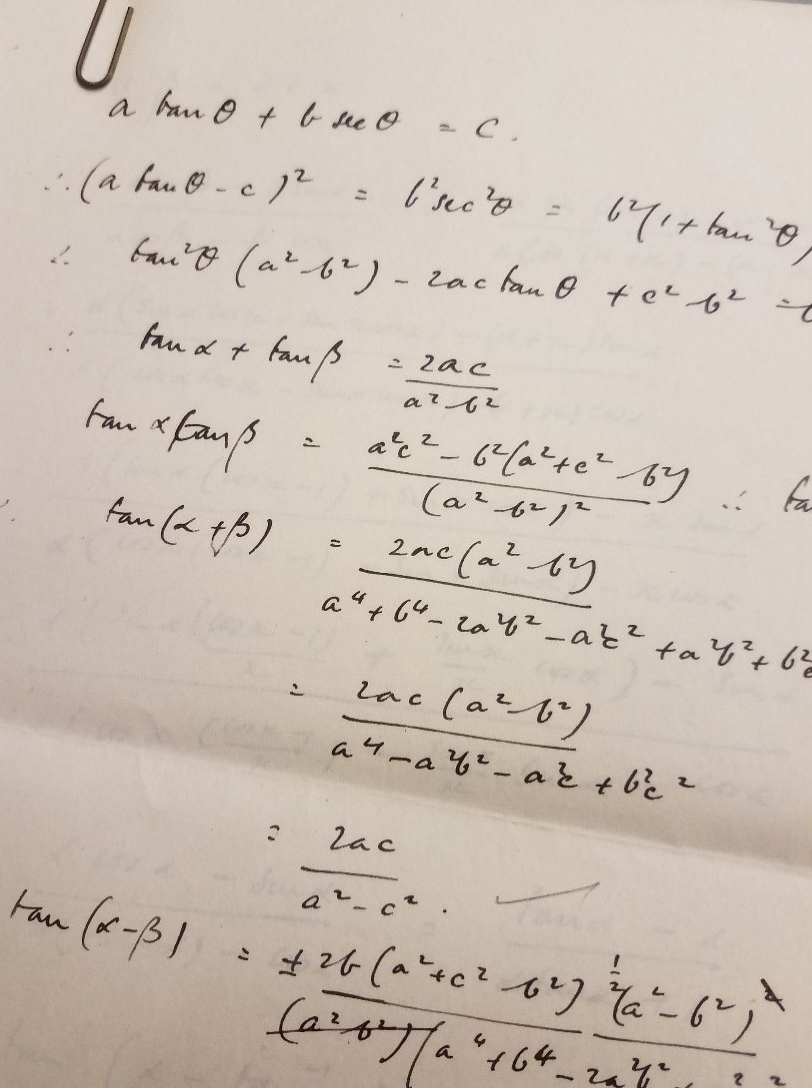 a tan θ + b sec θ = c.
∴ (a tan θ - c)² = b² sec² θ = b²(1 + tan² θ)
∴ tan² θ (a² - b²) - 2ac tan θ + c² - b² =
∴ tan α + tan β = 2ac / (a² - b²)
tan α tan β = (a²c² - b²(a² + c² - b²)) / (a² - b²)² ∴ ta
tan(α + β) = 2ac(a² - b²) / (a⁴ + b⁴ - 2a²b² - a²c² + a²b² + b²c
= 2ac (a² - b²) / (a⁴ - a²b² - a²c² + b²c²)
= 2ac / (a² - c²).
tan (α - β) = ± 2b (a² + c² - b²)^½ (a² - b²) / (a² - b²)(a⁴ + b⁴ - 2a²b²